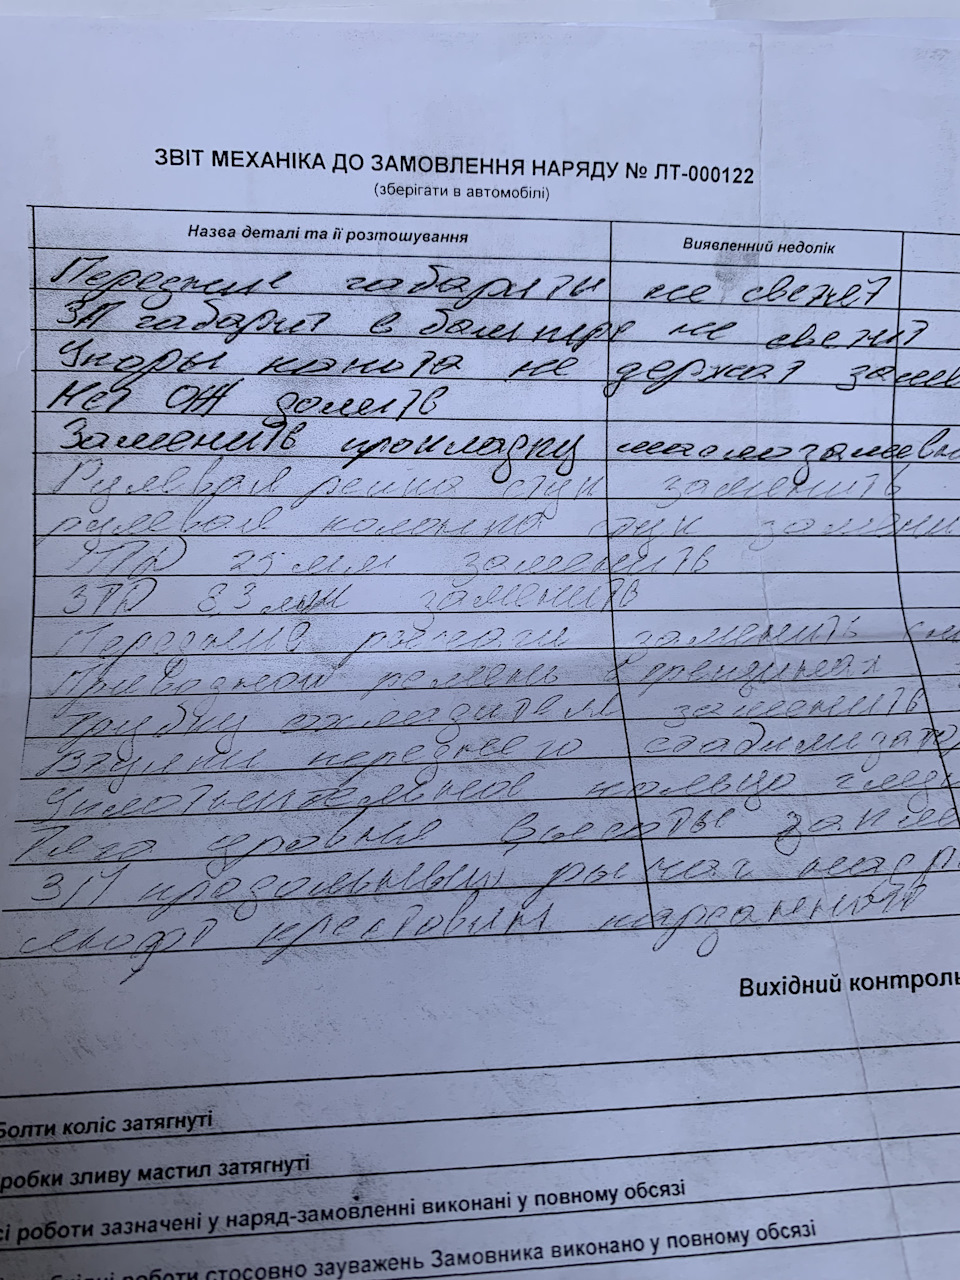 ЗВІТ МЕХАНІКА ДО ЗАМОВЛЕННЯ НАРЯДУ № ЛТ-000122
(зберігати в автомобілі)
Назва деталі та її розтошування Виявленний недолік
Передние габариты не светят
ЗЛ габарит в бампере не светит
Упоры капота не держат
Нет ОЖ долить
Заменить прокладку
Рулевая рейка стук заменить
рулевая колонка стук
ПТД 25 мм заменить
ЗТД 8,3 мм заменить
Передние рычаги заменить
Приводной ремень в трещинах
Трубку охладителя заменить
Втулки переднего
Уплотнительное кольцо
уровня высоты
ЗП продольный рычаг
люфт крестовин
Вихідний контроль
Болти коліс затягнуті
робки зливу мастил затягнуті
сі роботи зазначені у наряд-замовленні виконані у повному обсязі
роботи стосовно зауважень Замовника виконано у повному обсязі